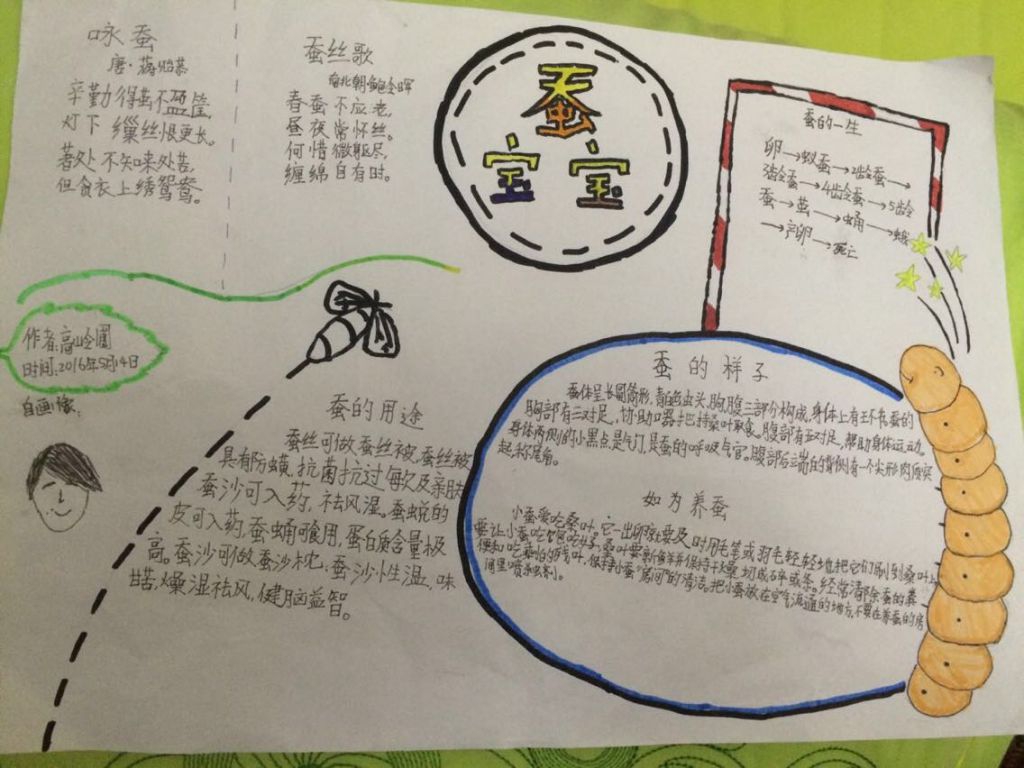 咏蚕
唐·蒋贻恭
辛勤得茧不盈筐,
灯下缫丝恨更长。
著处不知味处苦,
但贪衣上绣鸳鸯。
蚕丝歌
南北朝·鲍令晖
春蚕不应老,
昼夜常怀丝。
何惜微躯尽,
缠绵自有时。
蚕
宝宝
蚕的一生
卵→蚁蚕→2龄蚕→
3龄蚕→4龄蚕→5龄
蚕→茧→蛹→蛾
→产卵→死亡
作者:高
时间:2016年5月14日
自画像:
蚕的用途
蚕丝可做蚕丝被,蚕丝被
具有防螨,抗菌抗过敏及亲肤
蚕沙可入药,祛风湿。蚕蜕的
皮可入药,蚕蛹可食用,蛋白质含量极
高。蚕沙可做蚕沙枕:蚕沙性温,味
甘苦,燥湿祛风,健脑益智。
蚕的样子
蚕体呈长圆筒形,有白色,由头,胸,腹三部分构成,身体上有环节,蚕的
胸部有三对足,协助口器把持桑叶取食。腹部有五对足,帮助身体运动。
身体两侧的小黑点是气门,是蚕的呼吸气官。腹部后端的背侧有一个尖形肉质突
起,称尾角。
如为养蚕
小蚕爱吃桑叶,它一出卵就要及时用毛笔或羽毛轻轻地把它们刷到桑叶上
要让小蚕吃饱吃好,桑叶要新鲜并保持干燥,切成碎或条。经常清除蚕的粪
便和吃剩的残叶,保持小蚕"房间"的清洁,把小蚕放在空气流通的地方,不要在养蚕的房
间里喷杀虫剂。